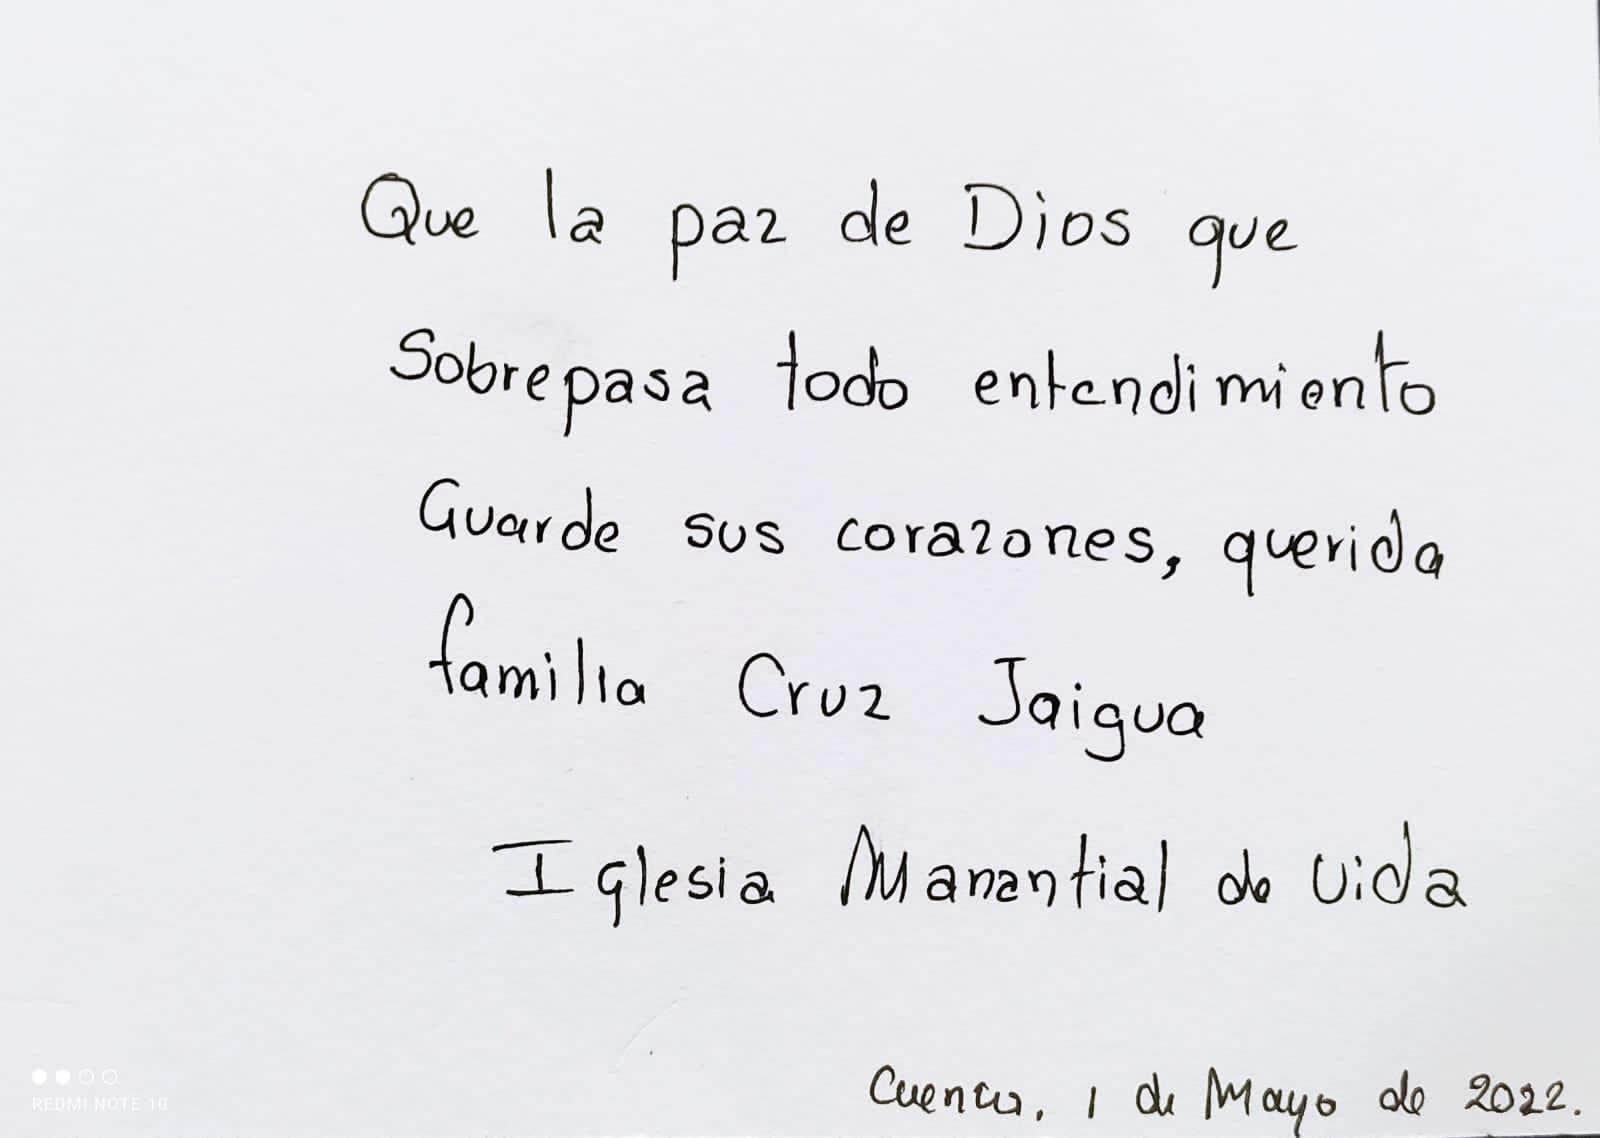 Que la paz de Dios que
Sobrepasa todo entendimiento
Guarde sus corazones, querida
familia Cruz Jaigua
Iglesia Manantial de Vida
Cuenca, 1 de Mayo de 2022.
REDMI NOTE 10